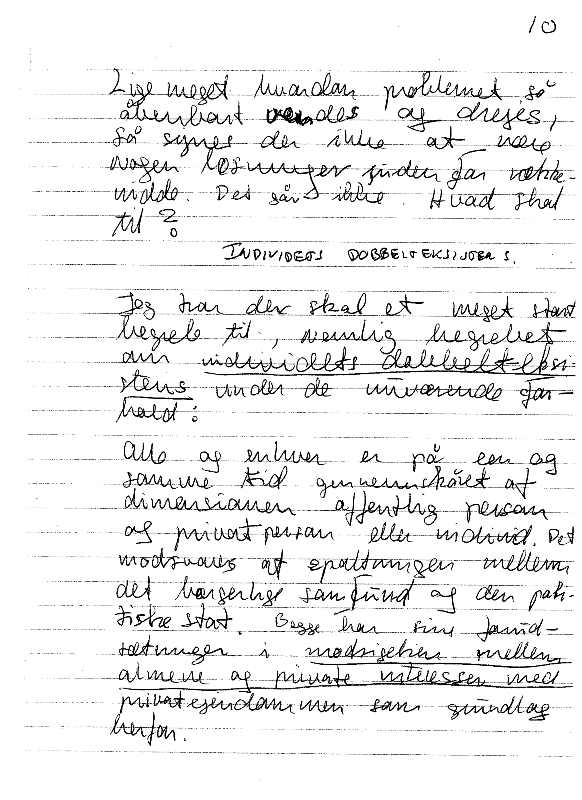 10
Lige meget hvordan problemet så
åbenbart vendes og drejes,
så synes der ikke at være
nogen løsninger inden for række-
vidde. Det går ikke. Hvad skal
til?
INDIVIDETS DOBBELTEKSISTENS.
Jeg tror der skal et meget stort
begreb til, nemlig begrebet
om individets dobbelt-eksi-
stens under de nuværende for-
hold:
Alle og enhver er på een og
samme tid gennemskåret af
dimensionen offentlig person
og privatperson eller individ. Det
modsvares af spaltningen mellem
det borgerlige samfund og den poli-
tiske stat. Begge har sine forud-
sætninger i modsigelsen mellem
almene og private interesser med
privatejendommen som grundlag
herfor.